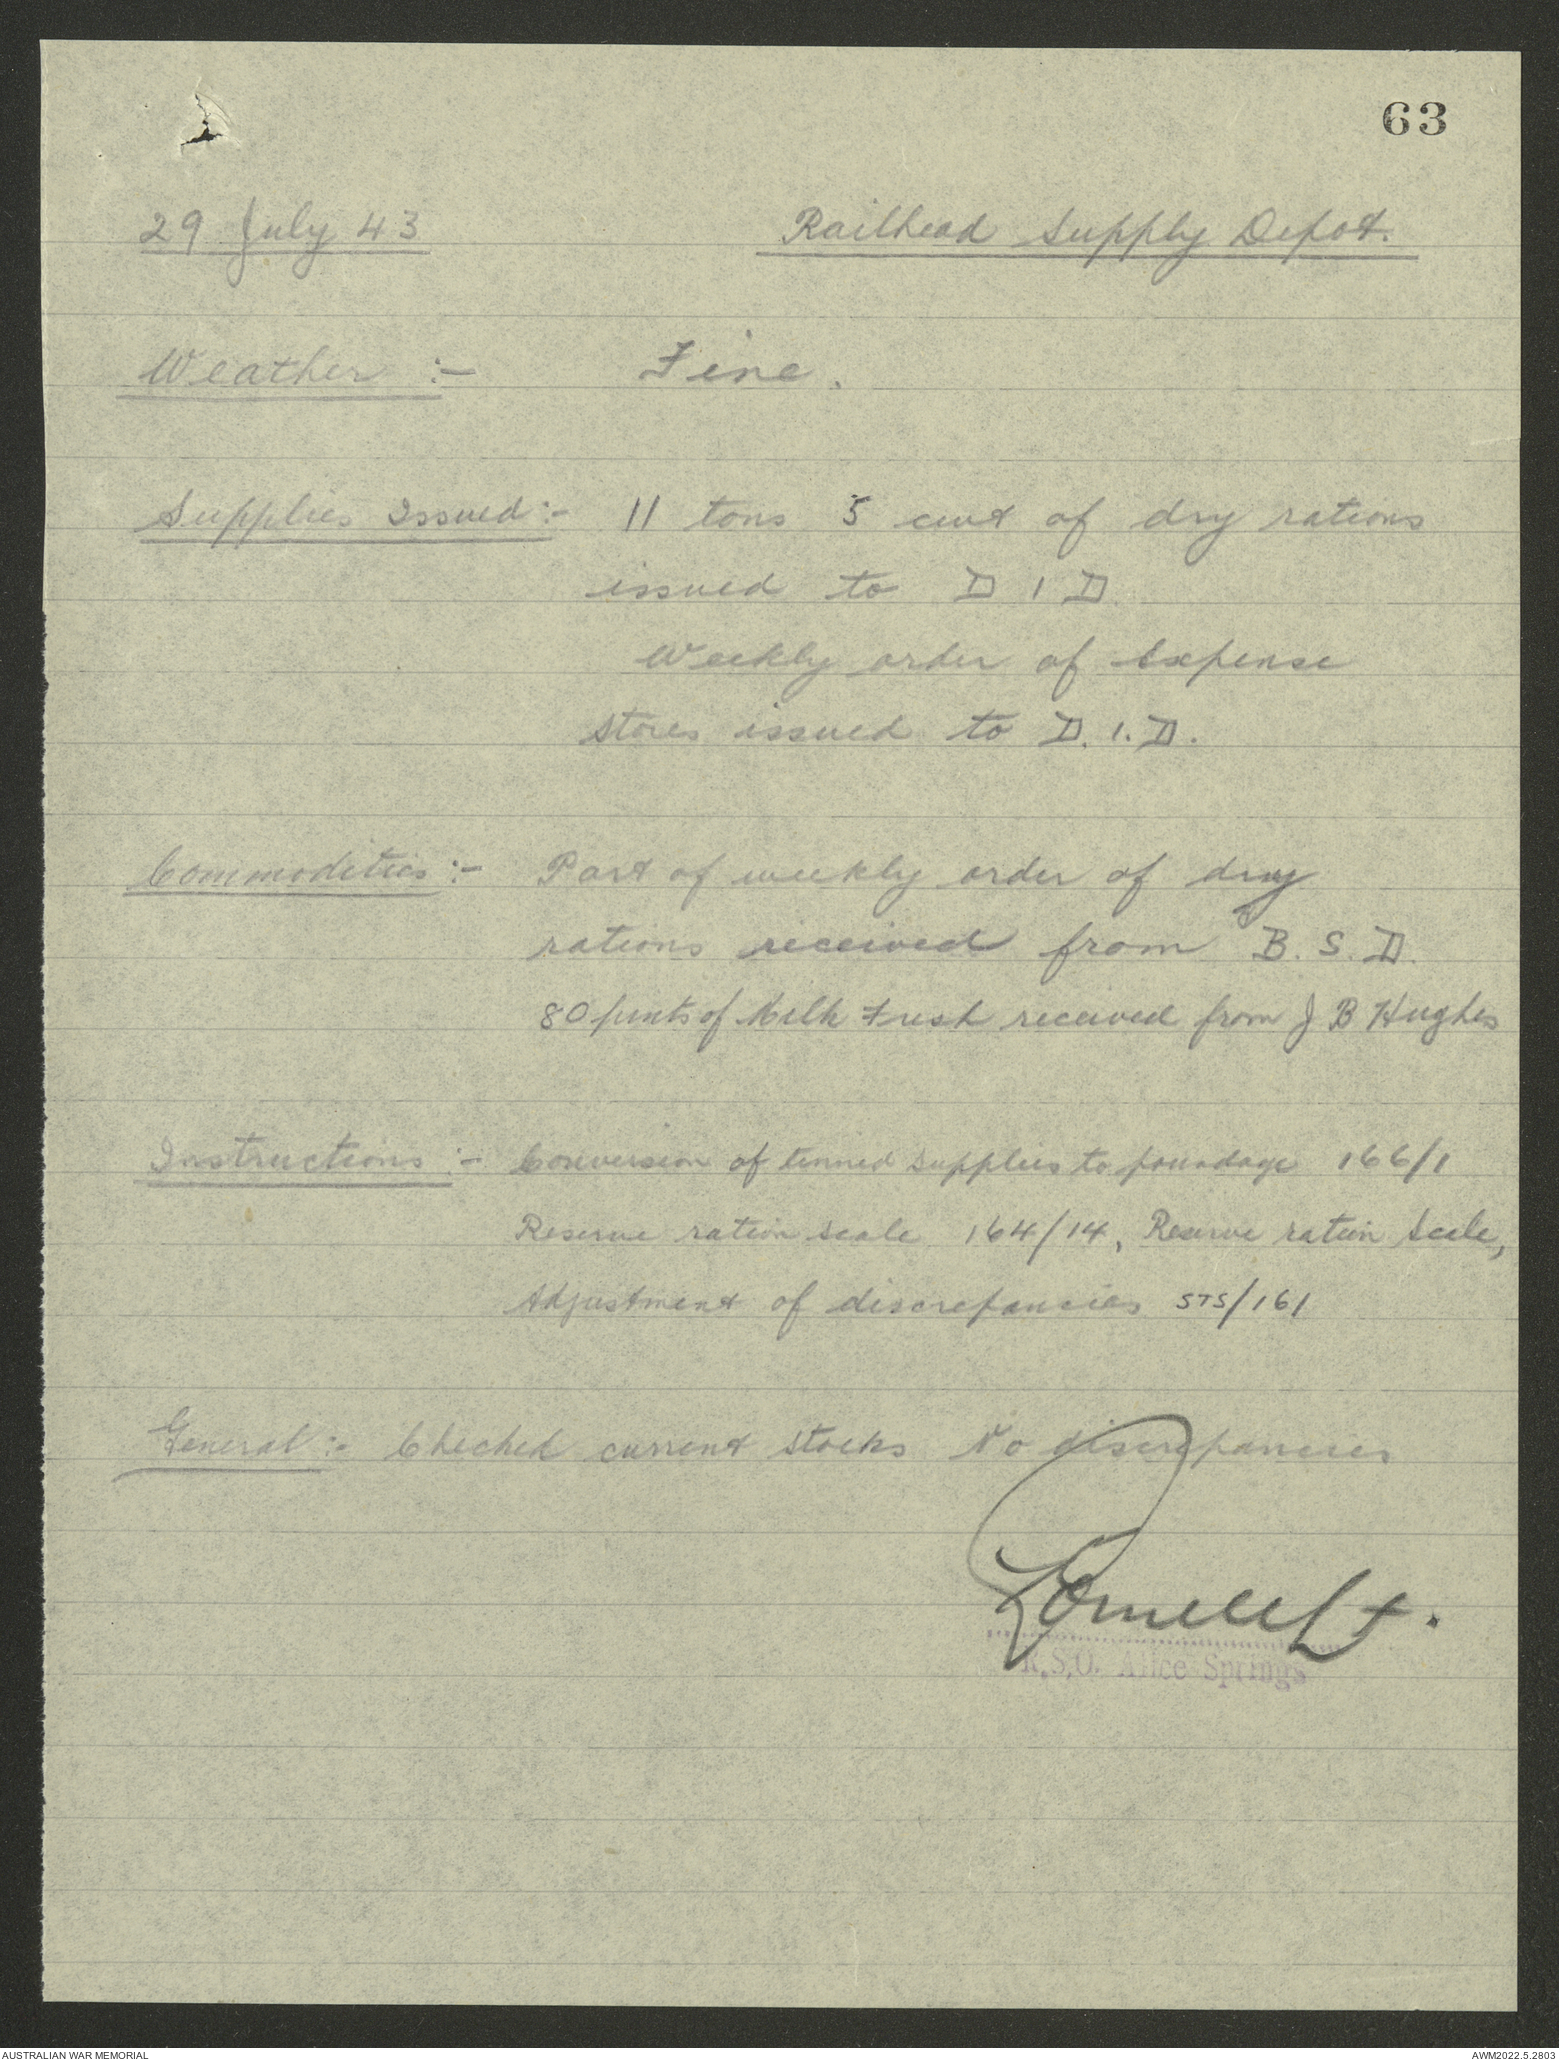 63
29 July 43 Railhead Supply Depot.
Weather :- Fine.
Supplies Issued :- 11 tons 5 cwt of dry rations
issued to D I D.
Weekly order of Expense
stores issued to D. I. D.
Commodities :- Part of weekly order of dry
rations received from B. S. D.
80 pints of Milk Fresh received from J B Hughes
Instructions :- Conversion of tinned supplies to poundage 166/1
Reserve ration scale 164/14, Reserve ration Scale,
Adjustment of discrepancies STS/161
General :- Checked current stocks No discrepancies
Lt.
R.S.O. Alice Springs
AUSTRALIAN WAR MEMORIAL AWM2022.5.2803